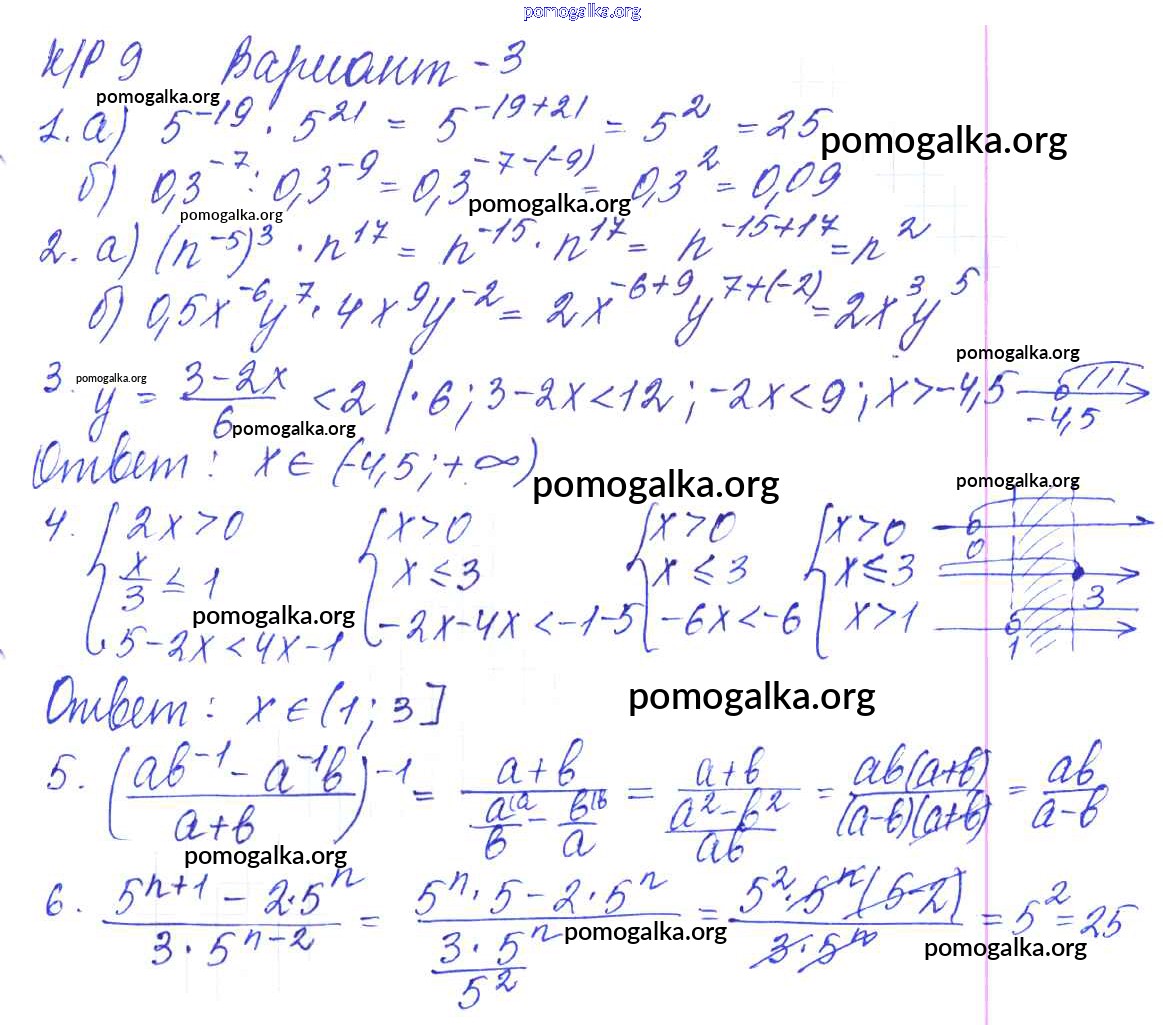 pomogalka.org
К/Р 9 Вариант - 3
pomogalka.org
1. а) 5^{-19} · 5^{21} = 5^{-19+21} = 5^2 = 25
pomogalka.org
б) 0,3^{-7} : 0,3^{-9} = 0,3^{-7-(-9)} = 0,3^2 = 0,09
pomogalka.org
pomogalka.org
2. а) (n^{-5})^3 · n^{17} = n^{-15} · n^{17} = n^{-15+17} = n^2
б) 0,5x^{-6}y^7 · 4x^9y^{-2} = 2x^{-6+9}y^{7+(-2)} = 2x^3y^5
pomogalka.org
3. pomogalka.org y = \frac{3-2x}{6} < 2 | · 6 ; 3-2x<12 ; -2x<9 ; x>-4,5
-4,5
pomogalka.org
Ответ : x ∈ (-4,5 ; +∞)
pomogalka.org
pomogalka.org
4. { 2x>0 { x>0 { x>0 { x>0
0
x/3 ≤ 1 x ≤ 3 x ≤ 3 x ≤ 3
3
pomogalka.org
5-2x<4x-1 -2x-4x<-1-5 -6x<-6 x>1
1
Ответ : x ∈ (1 ; 3]
pomogalka.org
5. (\frac{ab^{-1} - a^{-1}b}{a+b})^{-1} = \frac{a+b}{\frac{a^{(a}}{b} - \frac{b^{(b}}{a}} = \frac{a+b}{\frac{a^2-b^2}{ab}} = \frac{ab(a+b)}{(a-b)(a+b)} = \frac{ab}{a-b}
pomogalka.org
6. \frac{5^{n+1} - 2·5^n}{3·5^{n-2}} = \frac{5^n·5 - 2·5^n}{\frac{3·5^n}{5^2}} = \frac{5^2·5^n(5-2)}{3·5^n} = 5^2 = 25
pomogalka.org
pomogalka.org